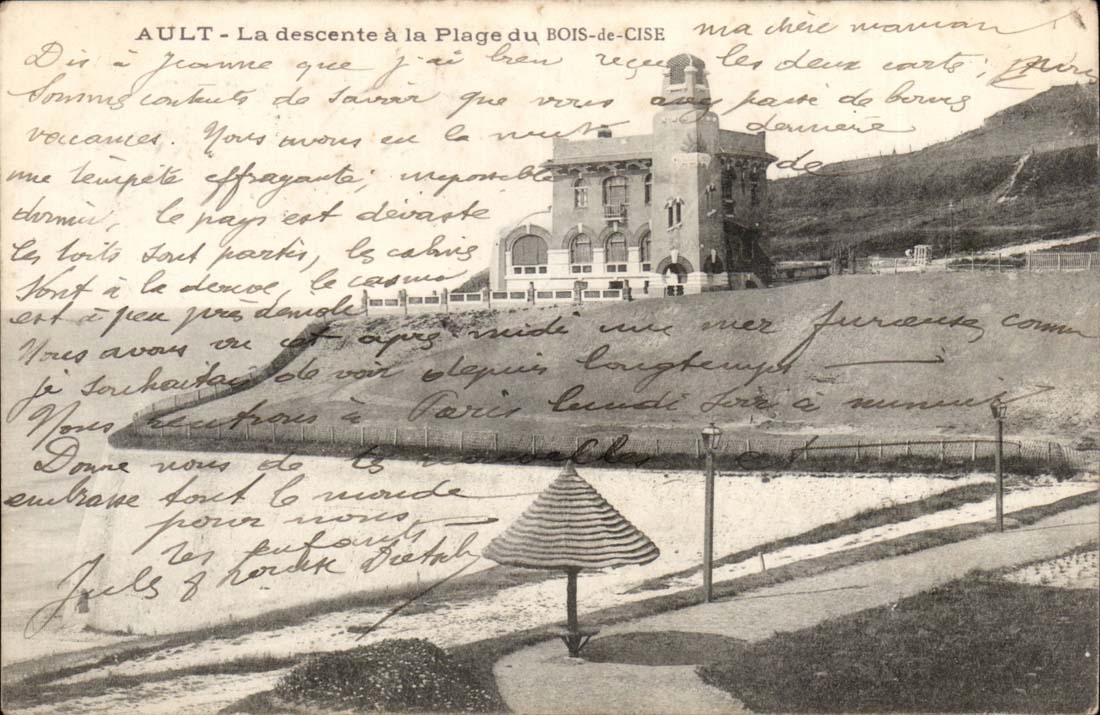 AULT - La descente à la Plage du BOIS-de-CISE
ma chère maman
Dis à Jeanne que j'ai bien reçu les deux carts;
Sommes contents de savoir que vous passé de bong
vacances. Nous avons eu la nuit dernière
une tempête effrayante; impossible de
dormir, le pays est dévasté
les toits sont partis, les cabins
sont à la derive, le casino
est à peu près démoli
Nous avons vu cet après midi une mer furieuse comme
je souhaitais de voir depuis longtemps
Nous rentrons à Paris lundi soir à minuit
Donne nous de ts nouvelles et
embrasse tout le monde
pour nous,
tes enfants
Jules & Louise